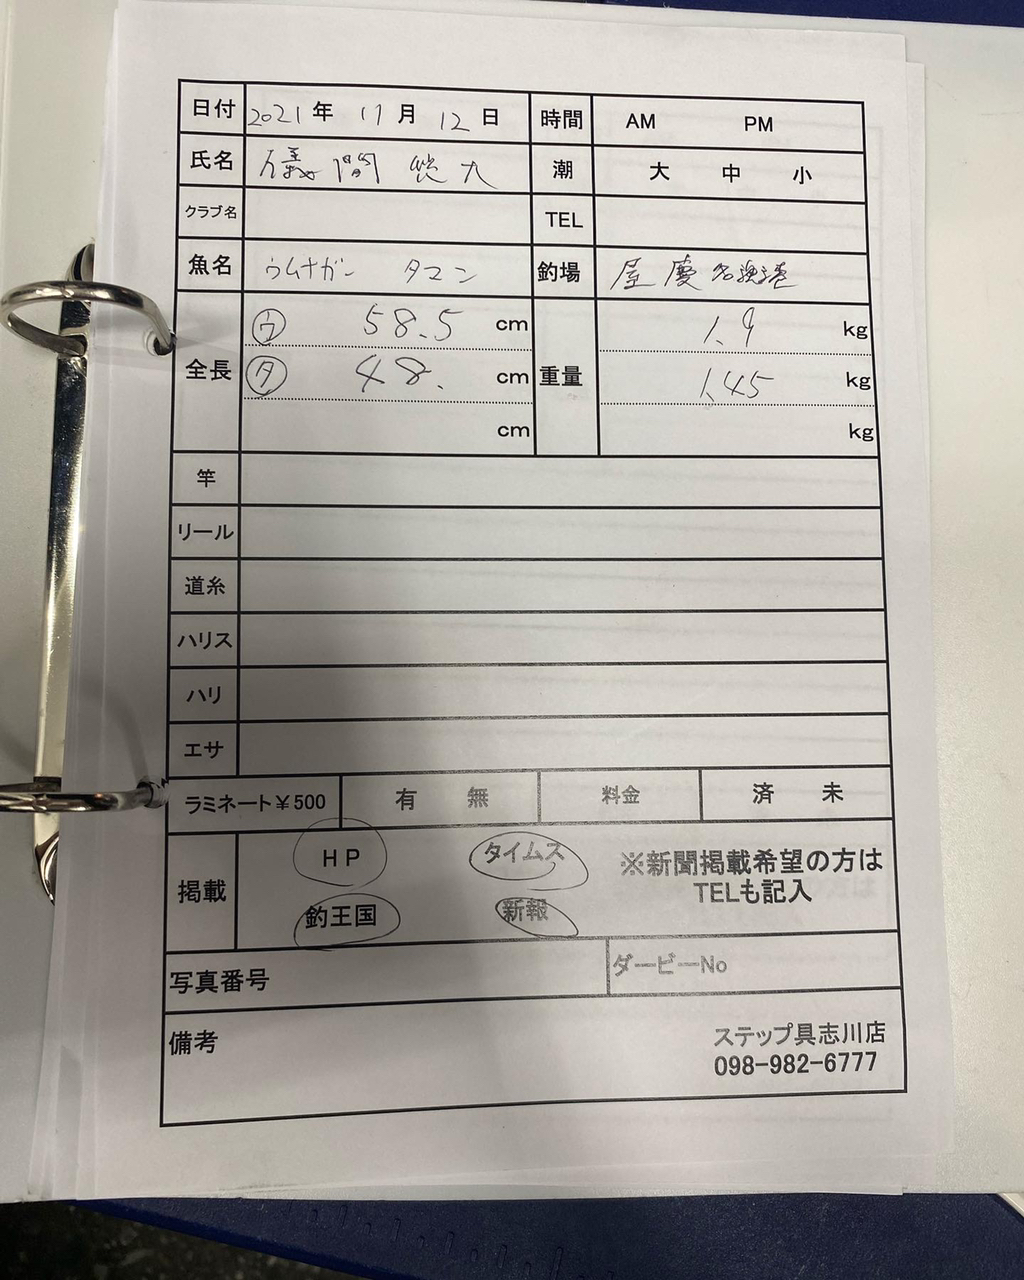 日付 2021年 11月 12日 時間 AM PM
氏名 儀間 悠大 潮 大 中 小
クラブ名 TEL
魚名 ウムナガー タマン 釣場 屋慶名漁港
全長 ㋒ 58.5 cm 重量 1.9 kg
㋟ 48. cm 1.45 kg
cm kg
竿
リール
道糸
ハリス
ハリ
エサ
ラミネート￥500 有 無 料金 済 未
掲載 HP タイムス ※新聞掲載希望の方は
釣王国 新報 TELも記入
写真番号 ダービーNo
備考 ステップ具志川店
098-982-6777